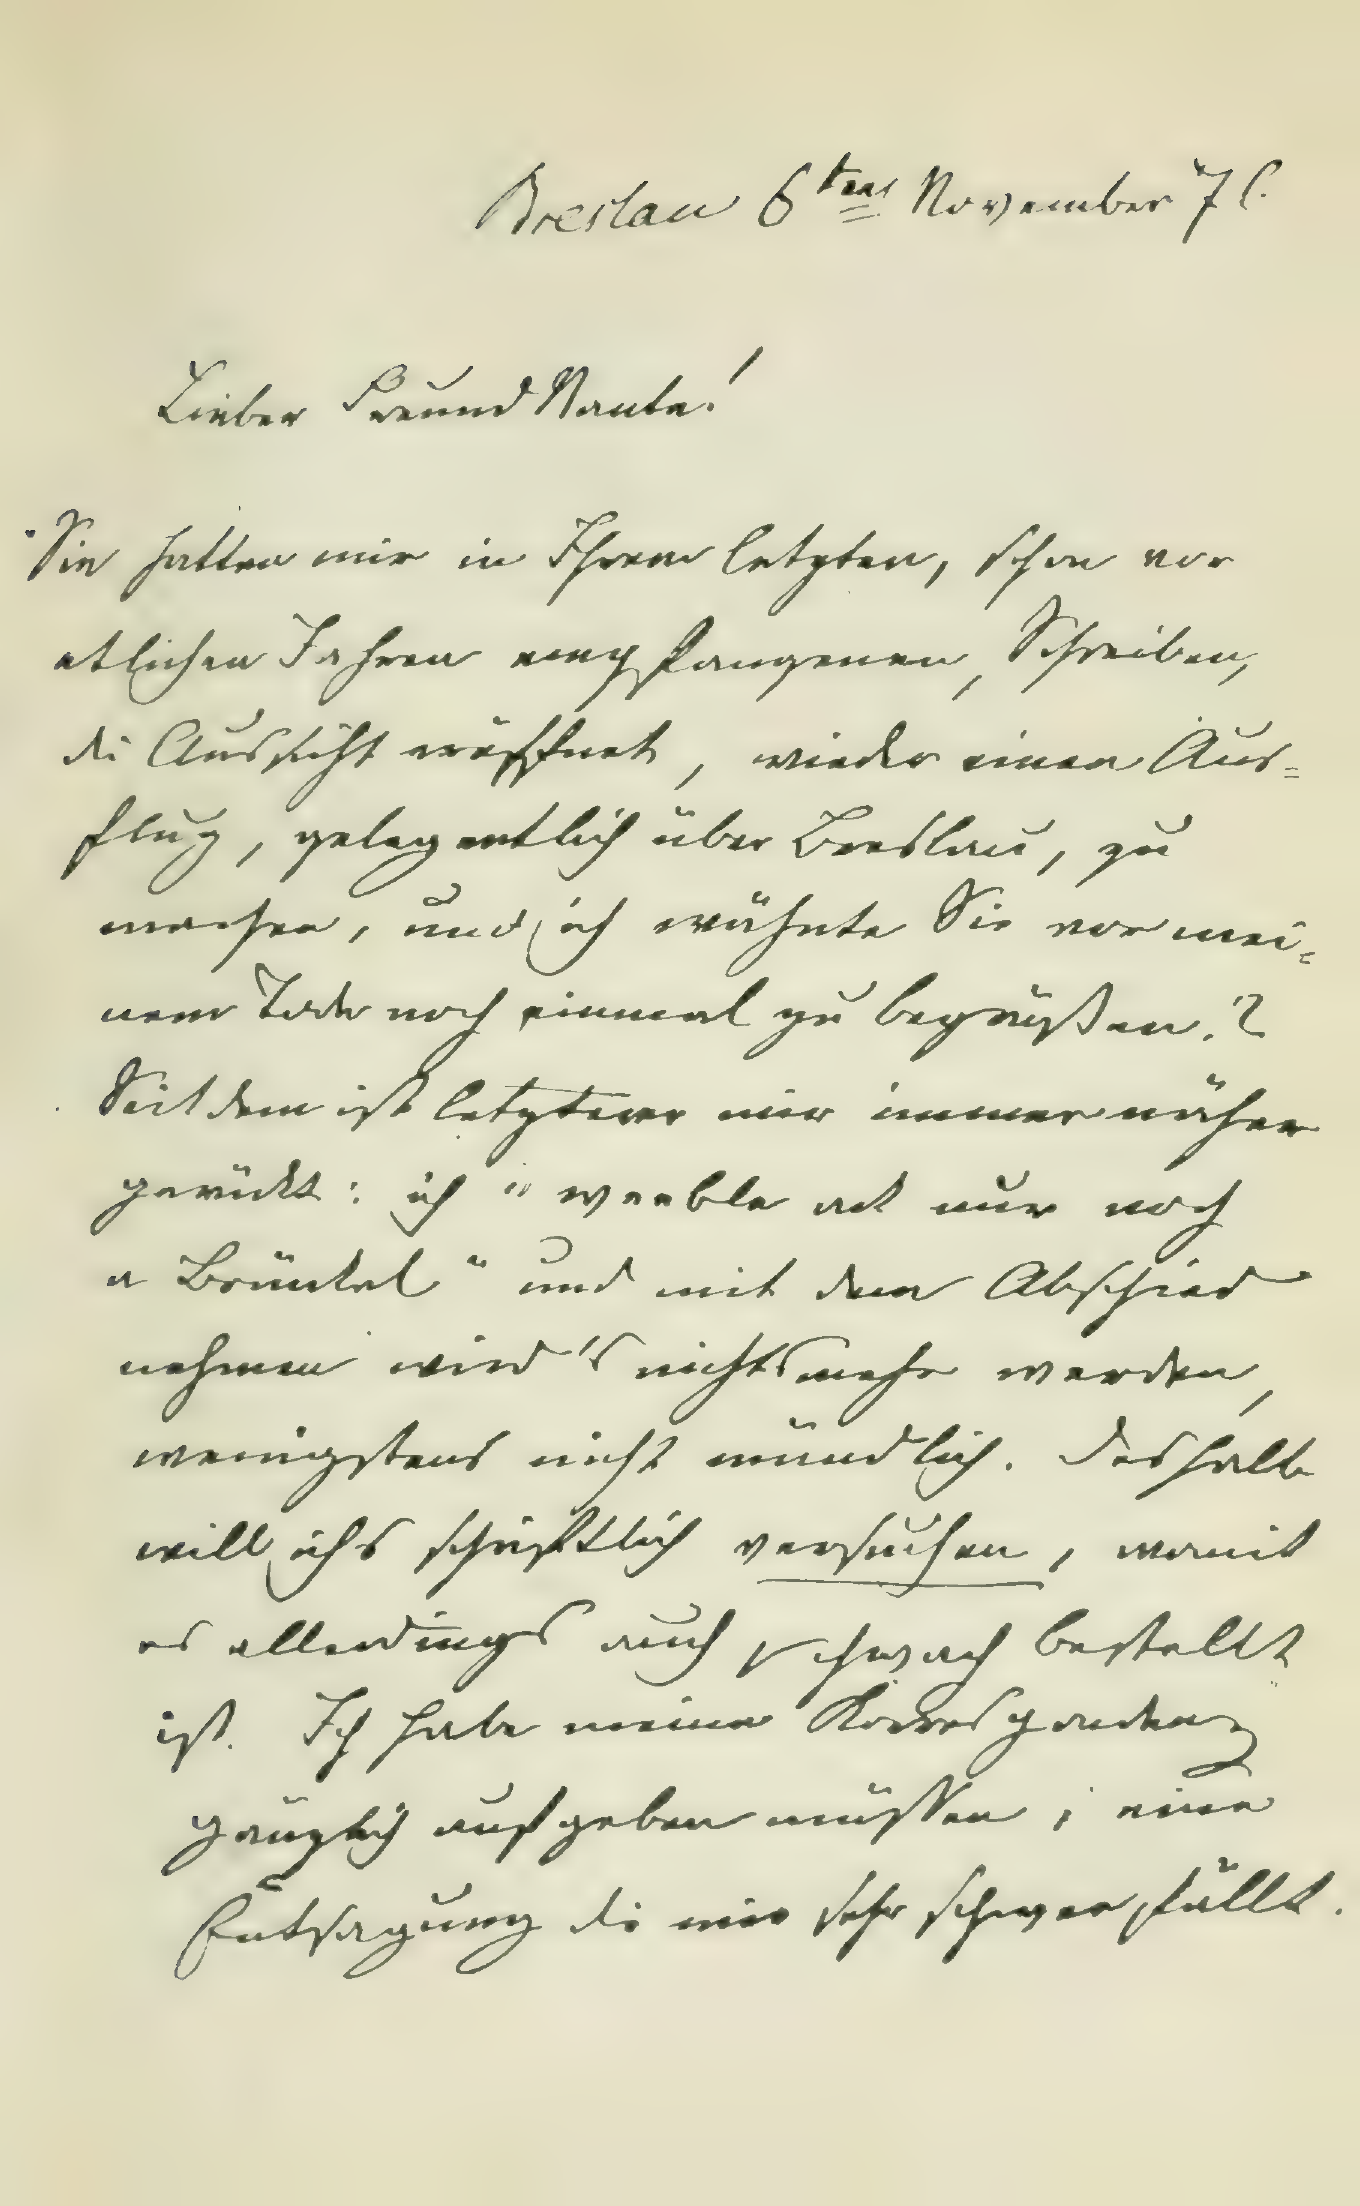 Breslau 6tens November 76.
Lieber Freund Nante!
Sie hatten mir in Ihrem letzten, schon vor
etlichen Jahren empfangenen, Schreiben,
die Aussicht eröffnet, wieder einen Aus=
flug, gelegentlich über Breslau, zu
machen, und ich wähnte Sie vor mei=
nem Tode noch einmal zu begrüßen!?
Seitdem ist letzterer mir immer näher
gerückt: ich „weeble ack nur noch
a Brünkel“ und mit dem Abschied
nehmen wird's nichts mehr werden,
wenigstens nicht mündlich. Deshalb
will ichs schriftlich versuchen, womit
es allerdings auch schwach bestellt
ist. Ich habe meine Korrespondenz
gänzlich aufgeben müssen; eine
Entsagung die mir sehr schwer fällt.